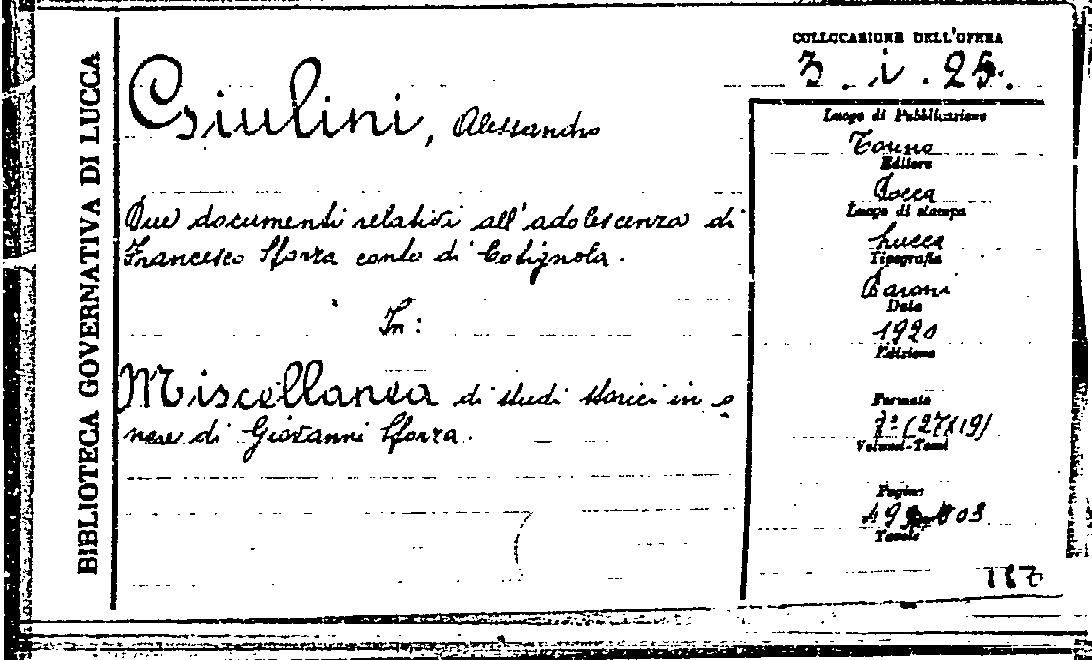 BIBLIOTECA GOVERNATIVA DI LUCCA
Giulini, Alessandro
Due documenti relativi all'adolescenza di
Francesco Sforza conte di Cotignola.
In:
Miscellanea di studi storici in o
nore di Giovanni Sforza.
COLLOCAZIONE DELL'OPERA
3. i. 25.
Luogo di Pubblicazione
Torino
Editore
Bocca
Luogo di stampa
Lucca
Tipografia
Baroni
Data
1920
Edizione
Formato
(27x19)
Volumi-Tomi
Pagine
Tavole